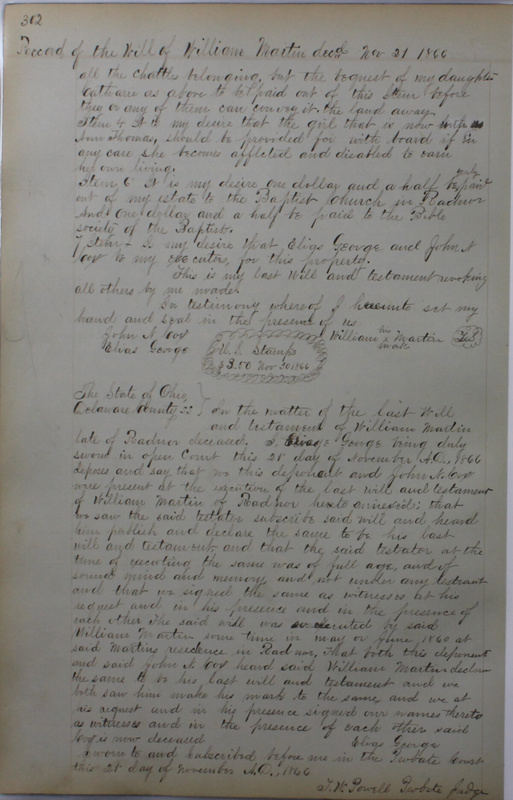 302
Record of the Will of William Martin decd Nov 21 1866
all the chattles belonging, but the bequest of my daughter
Catharine as above to be paid out of this Item before
they or any of them can convey it the land away.
Item 4 It is my desire that the girl that is now with us
Ann Thomas, should be provided for with board if in
any care she becomes afflicted and disabled to earn
her own living.
Item 6 It is my desire one dollar and a half be paid
out of my estate to the Baptist Church in Radnor
And One dollar and a half be paid to the Bible
society of the Baptists.
7 Item It is my desire that Elias George and John N
Cox be my executers, for this property.
This is my last Will and testament revoking
all others by me made
In testimony whereof I hereunto set my
hand and seal in the presence of us
John N Cox William his x mark Martin
Elias George
U.S. Stamps
$3.50 Nov 30 1866
The State of Ohio,
Delaware County ss In the matter of the last Will
and testament of William Martin
late of Radnor deceased. I Elias George being duly
sworn in open Court this 21 day of November A.D. 1866
depose and say that we this deponent and John N. Cox
were present at the execution of the last will and testament
of William Martin of Radnor hereto annexed: that
we saw the said testator subscribe said will and heard
him publish and declare the same to be his last
will and testament and that the said testator at the
time of executing the same was of full age, and of
sound mind and memory and not under any restraint
and that we signed the same as witnesses at his
request and in his presence and in the presence of
each other The said will was executed by said
William Martin some time in may or June, 1860 at
said Martins residence in Radnor, That both this deponent
and said John N Cox heard said William Martin declare
the same to be his last will and testament and we
both saw him make his mark to the same, and we at
his request and in his presence signed our names thereto
as witnesses and in the presence of each other said
Cox is now deceased Elias George
Sworn to and Subscribed before me in the Probate Court
this 21 day of November A.D. 1866
T. W. Powell Probate Judge